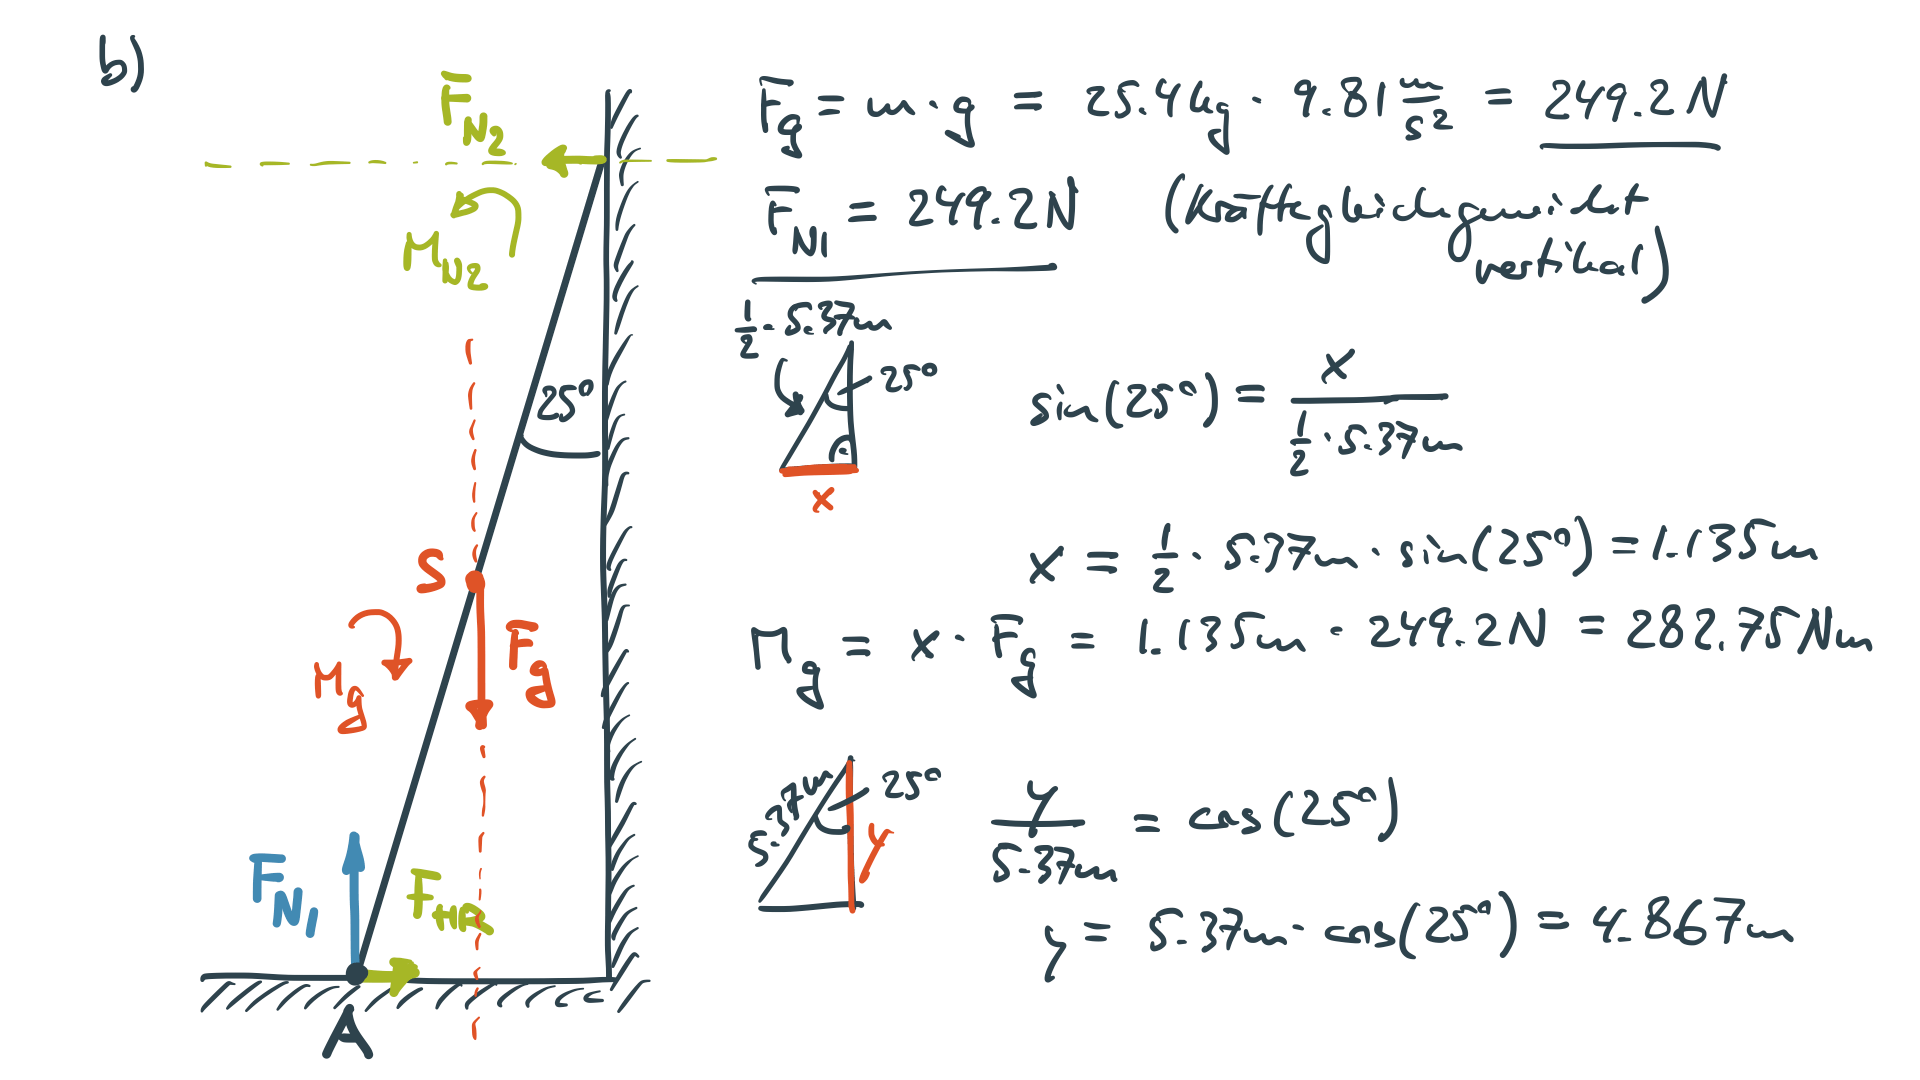 b)
F_N2
M_N2
25°
S
F_g
M_g
F_N1
F_HR
A
F_g = m · g = 25.4 kg · 9.81 m/s² = 249.2 N
F_N1 = 249.2 N (Kräftegleichgewicht
vertikal)
1/2 · 5.37m
25°
x
sin(25°) = x / (1/2 · 5.37m)
x = 1/2 · 5.37m · sin(25°) = 1.135m
M_g = x · F_g = 1.135m · 249.2 N = 282.75 Nm
5.37m
25°
y
y / 5.37m = cos(25°)
y = 5.37m · cos(25°) = 4.867m